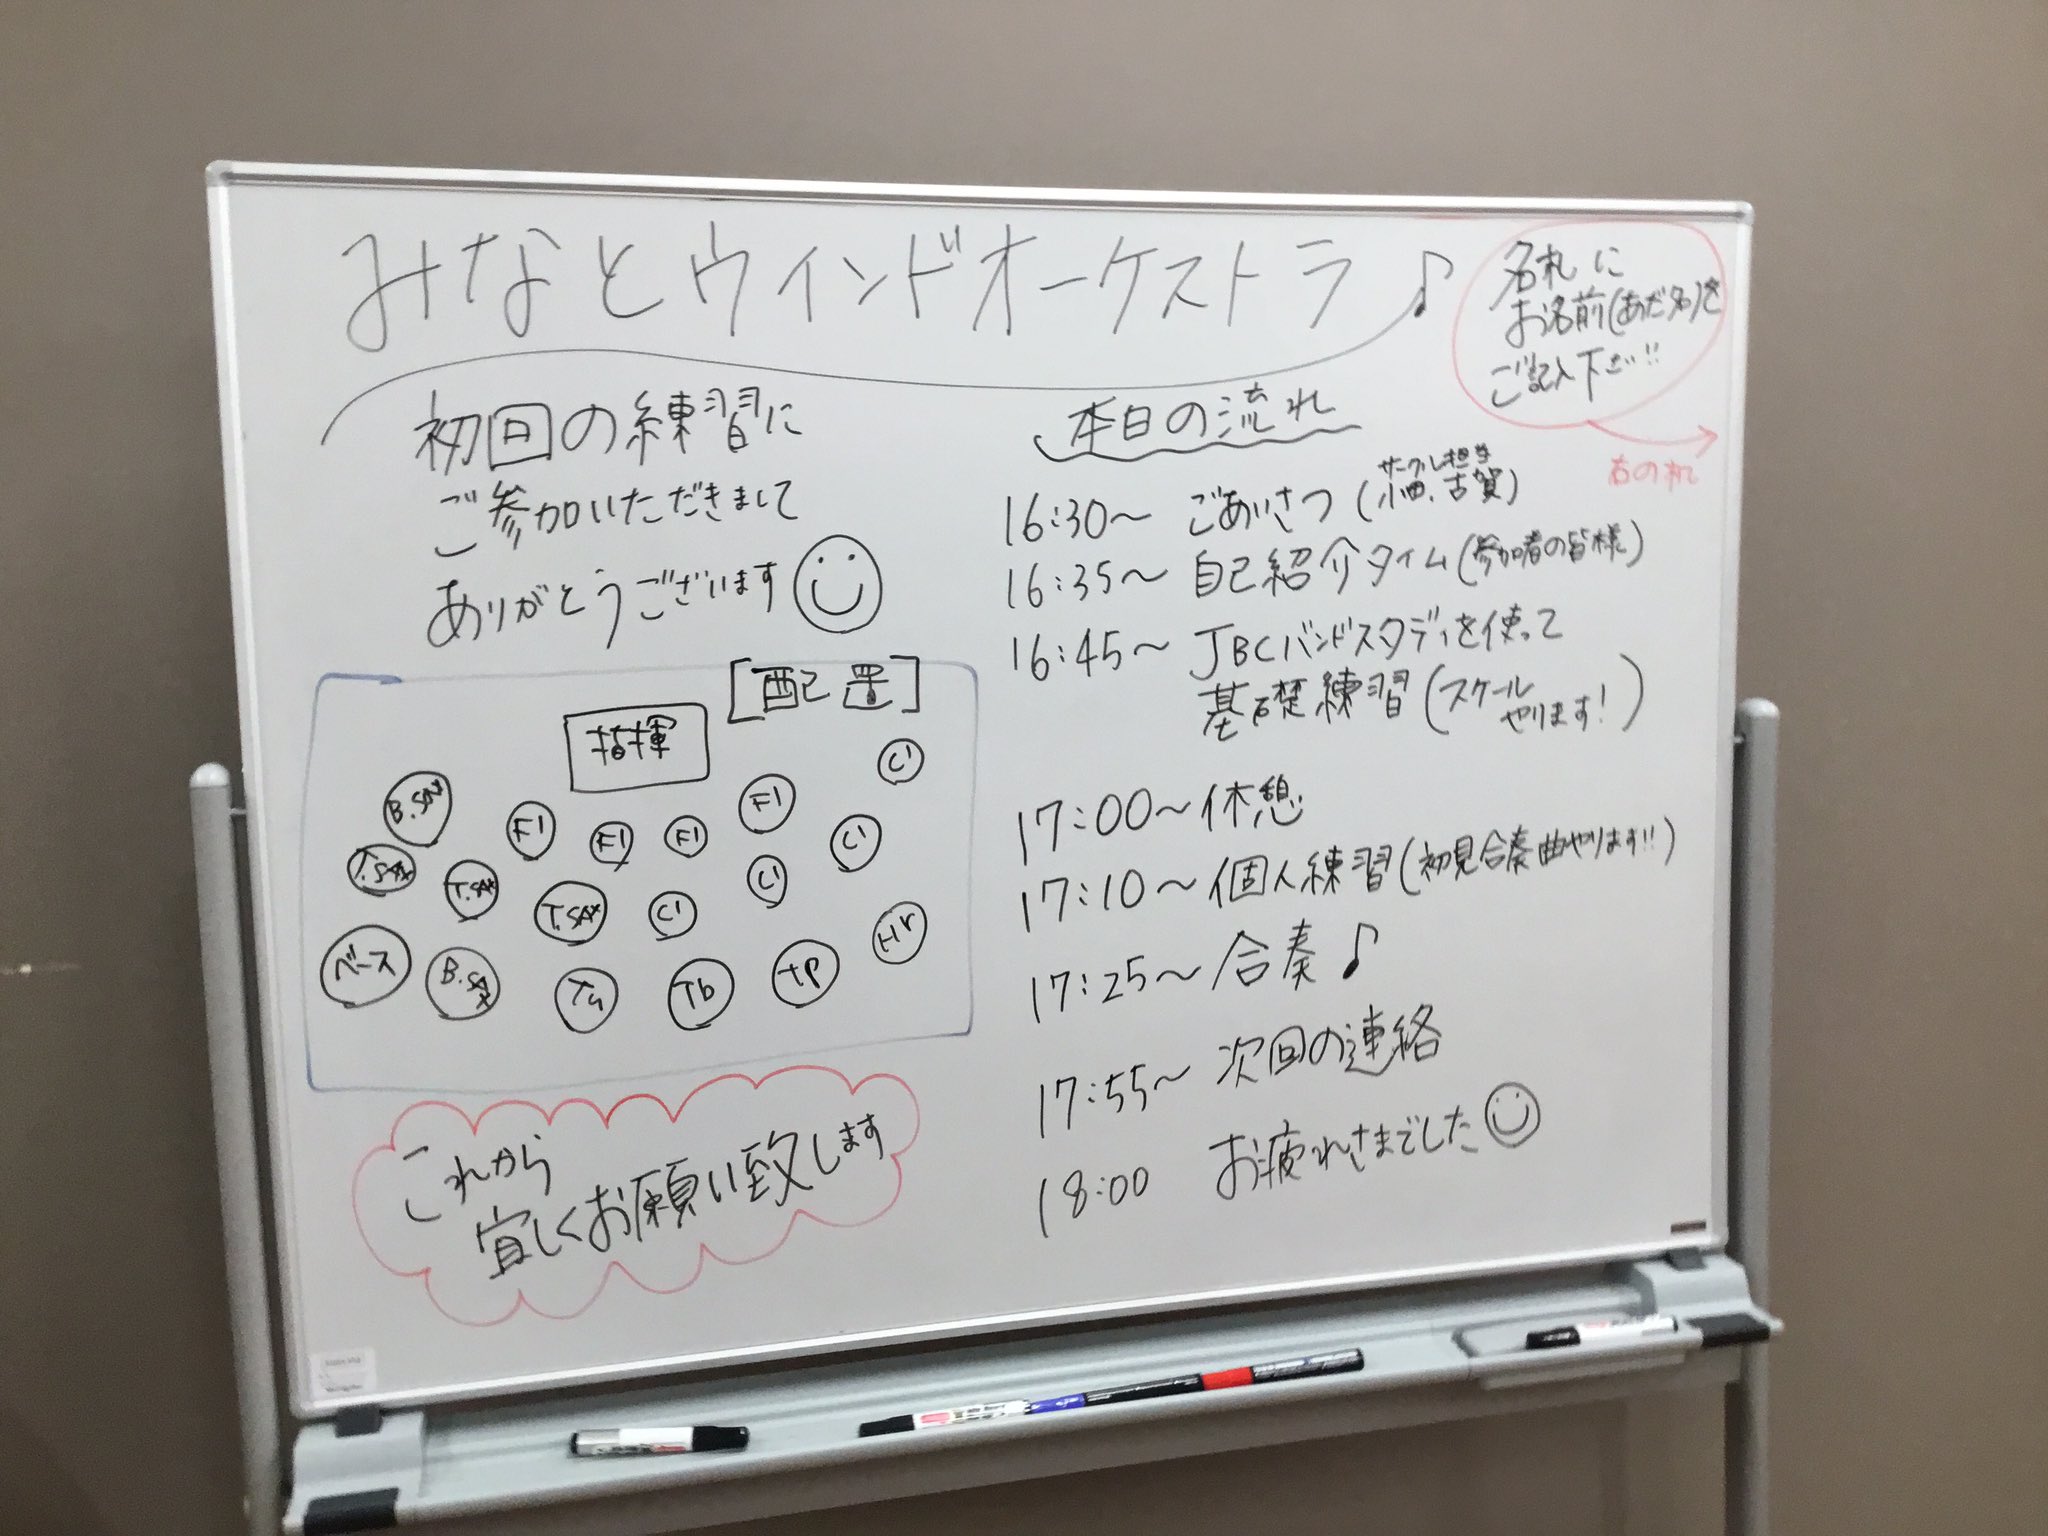 みなとウィンドオーケストラ♪
名札に
お名前(あだ名)を
ご記入下さい!!
右の机
初回の練習に
ご参加いただきまして
ありがとうございます
[配置]
指揮
Cl
B.SAX
Fl
Fl
Fl
Fl
Cl
T.SAX
T.SAX
T.SAX
Cl
Cl
Hr
ベース
B.SAX
Tu
Tb
tp
これから
宜しくお願い致します
本日の流れ
サークル担当
16:30〜 ごあいさつ (小畑、古賀)
16:35〜 自己紹介タイム(参加者の皆様)
16:45〜 JBCバンドスタディを使って
基礎練習(スケール
やります!)
17:00〜休憩
17:10〜個人練習(初見合奏曲やります!!)
17:25〜合奏♪
17:55〜次回の連絡
18:00 お疲れさまでした